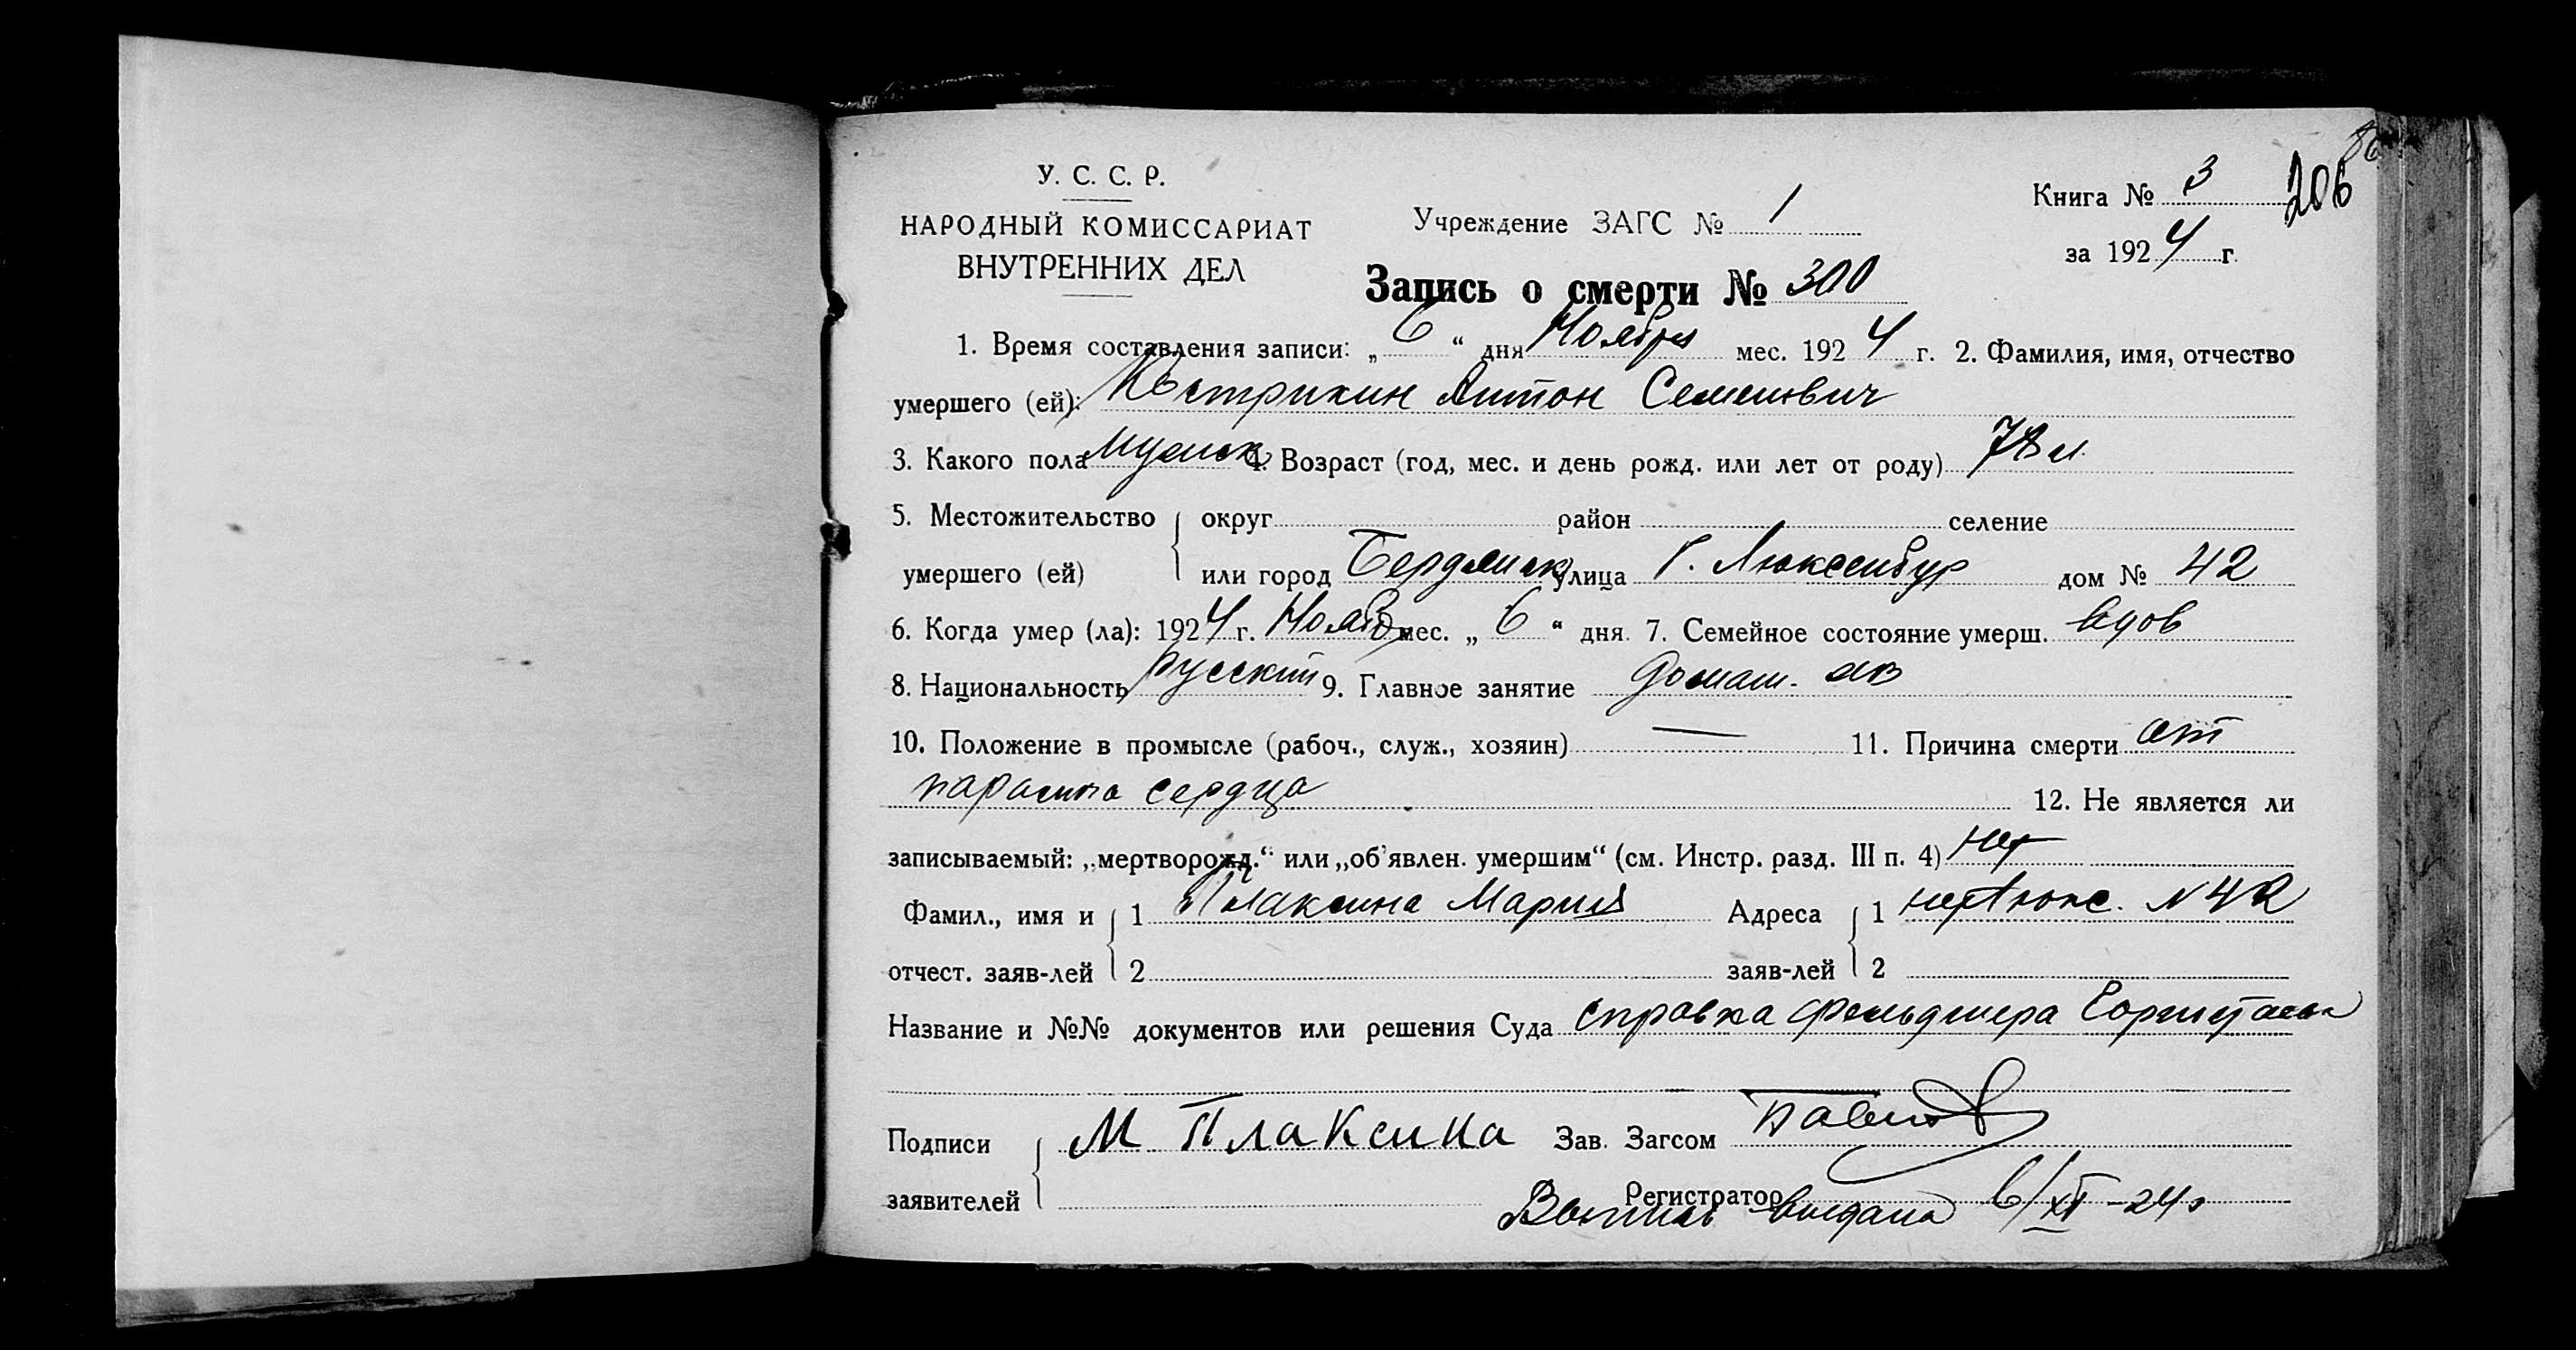 У. С. С. Р.
НАРОДНЫЙ КОМИССАРИАТ
ВНУТРЕННИХ ДЕЛ
Учреждение ЗАГС № 1
Книга № 3 206
за 1924 г.
Запись о смерти № 300
1. Время составления записи: „6“ дня Ноября мес. 1924 г. 2. Фамилия, имя, отчество
умершего (ей): Кострикин Антон Семенович
3. Какого пола мужск 4. Возраст (год, мес. и день рожд. или лет от роду) 78 л.
5. Местожительство округ район селение
умершего (ей) или город Бердянск улица Р. Люксенбур дом № 42
6. Когда умер (ла): 1924 г. Нояб мес. „6“ дня. 7. Семейное состояние умерш. вдов
8. Национальность русский 9. Главное занятие домаш.
10. Положение в промысле (рабоч., служ., хозяин) — 11. Причина смерти от
паралича сердца 12. Не является ли
записываемый: „мертворожд.“ или „об'явлен. умершим“ (см. Инстр. разд. III п. 4) нет
Фамил., имя и 1 Плаксина Мария Адреса 1 Люкс. N 42
отчест. заяв-лей 2 заяв-лей 2
Название и №№ документов или решения Суда справка фельдшера
Подписи М Плаксина Зав. Загсом
заявителей Регистратор
Выпись выдана 6/XI-24 г